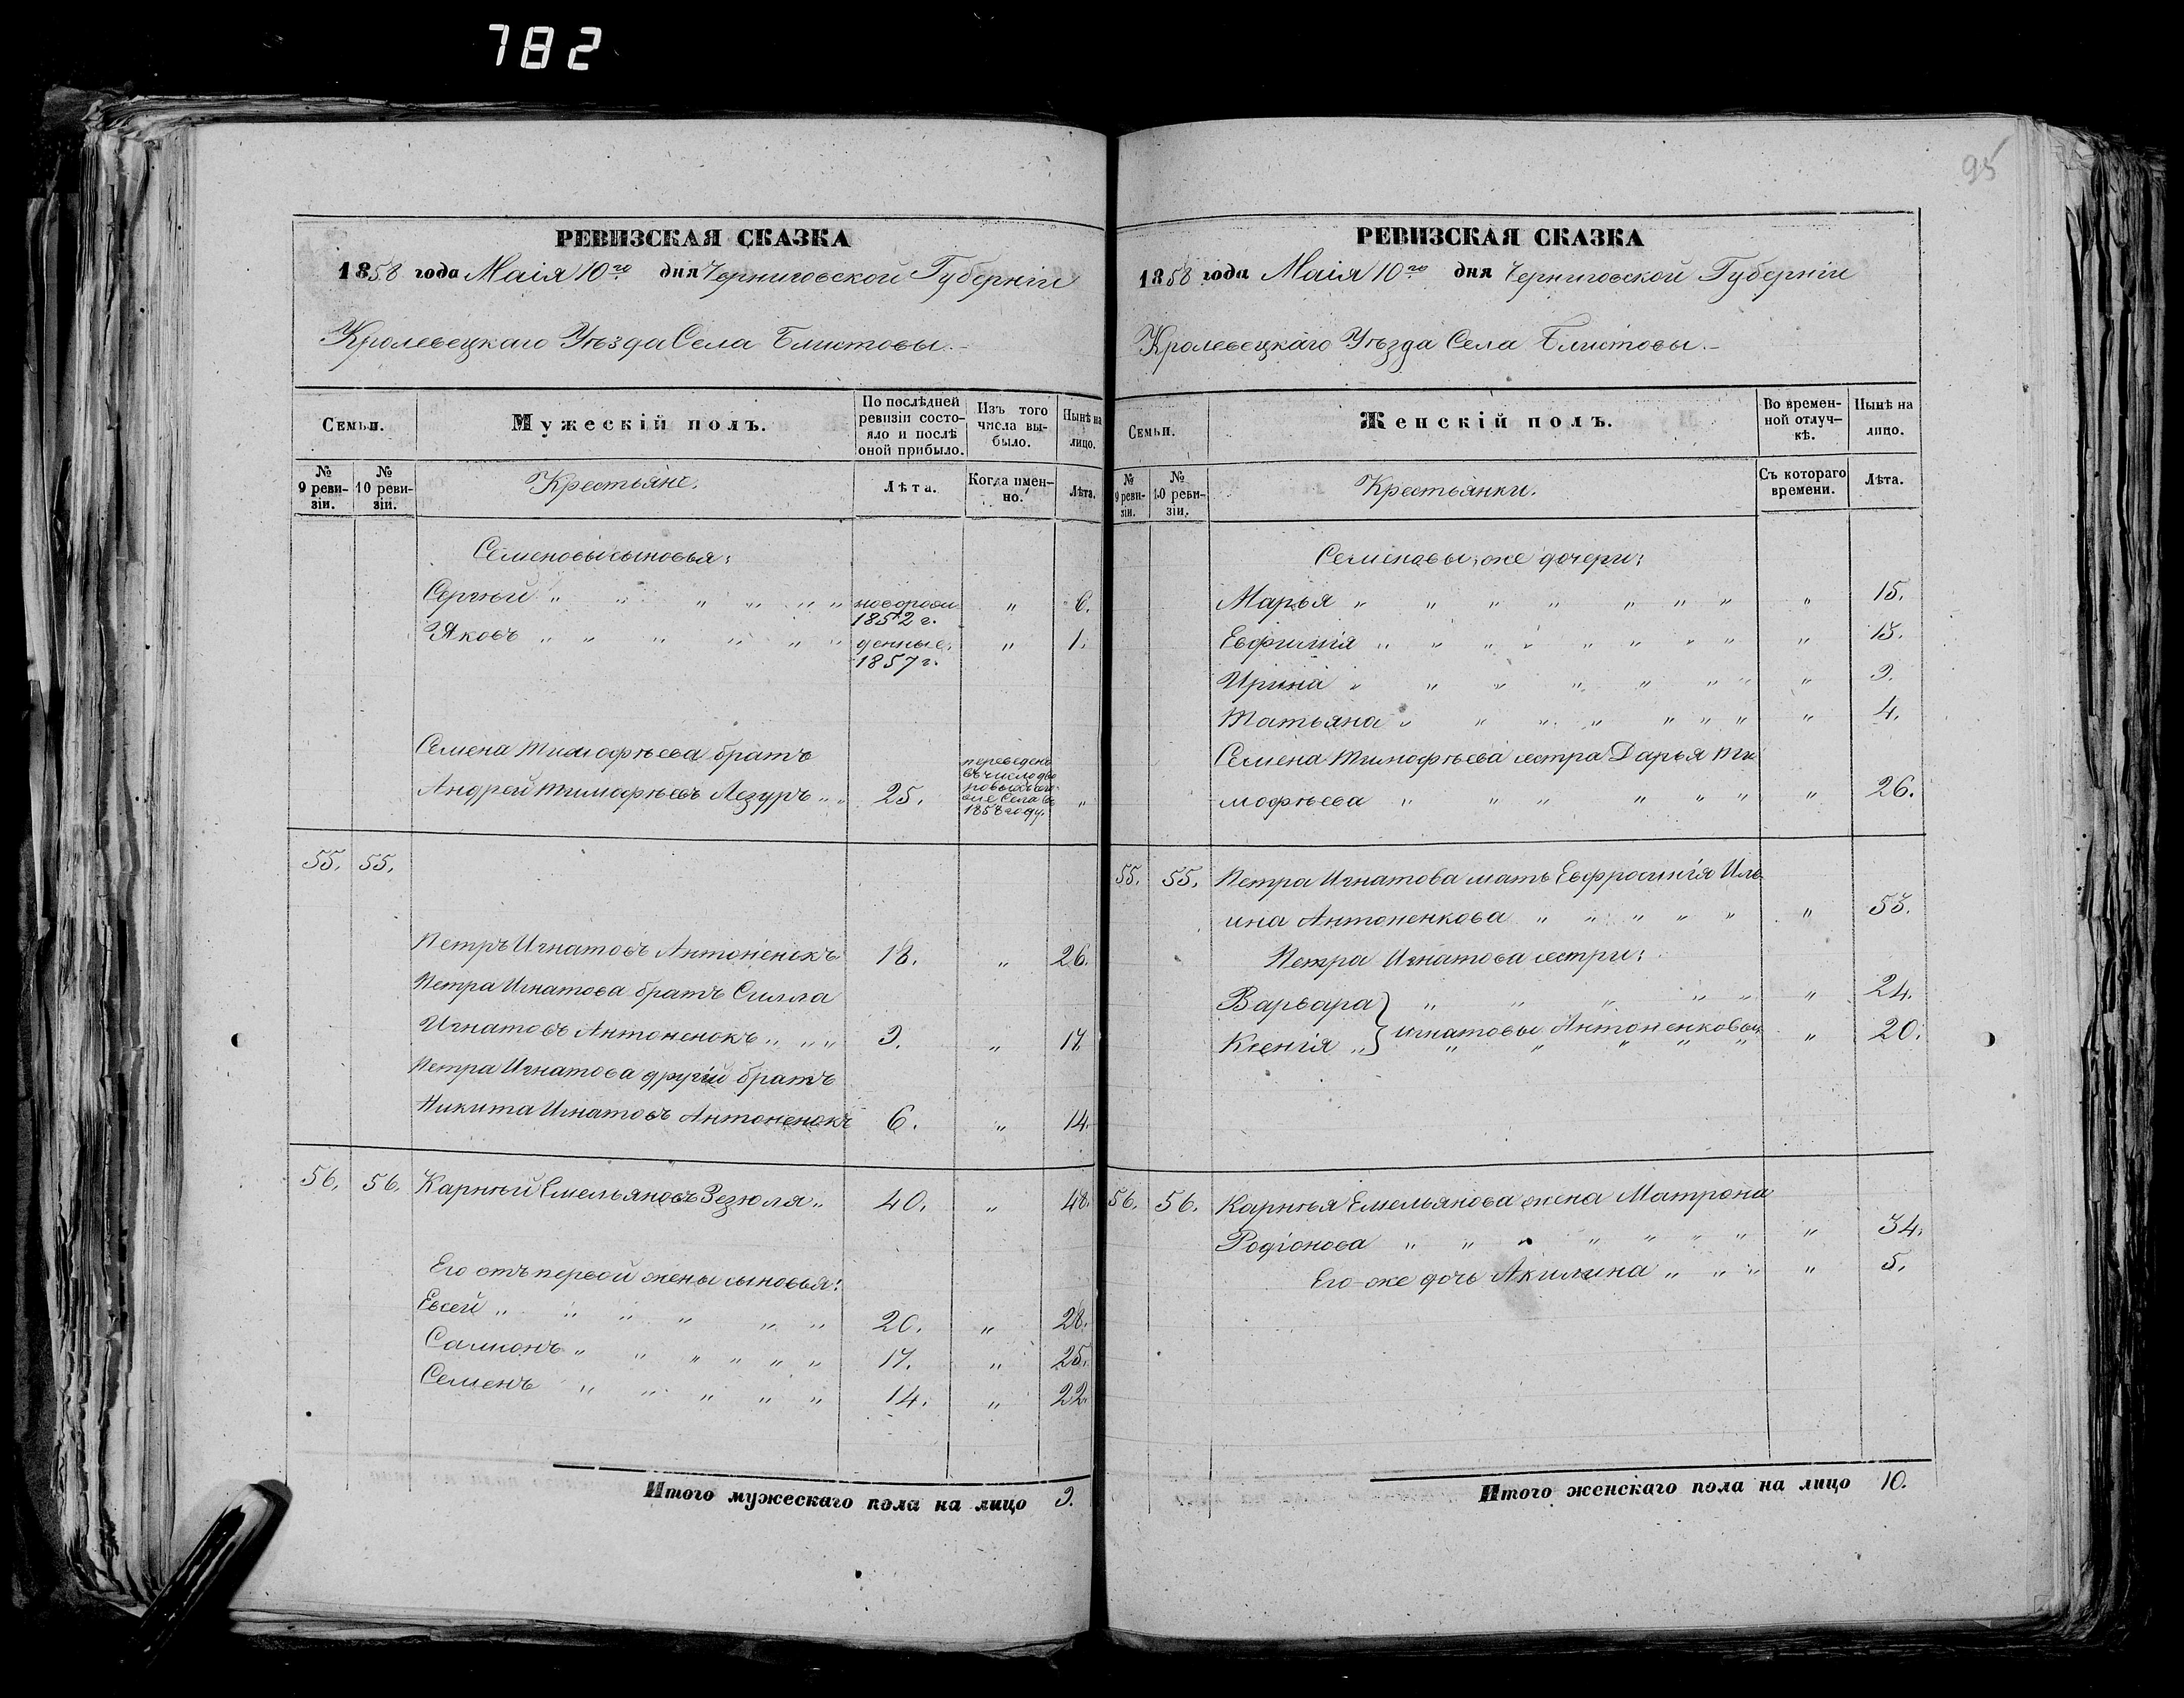 782
95
РЕВИЗСКАЯ СКАЗКА
1858 года Маія 10го дня Черниговской Губерніи
Кролевецкаго Уѣзда Села Блистовы.
Семьи.
Мужескій полъ.
По послѣдней ревизіи состояло и послѣ оной прибыло.
Изъ того числа выбыло.
Нынѣ на лицо.
№ 9 ревизіи.
№ 10 ревизіи.
Крестьяне.
Лѣта.
Когда именно.
Лѣта.
Семеновы сыновья:
Сергѣй " " " " " " новорож 1852 г. " 6.
Яковъ " " " " " " денные. 1857 г. " 1.
Семена Тимофѣева братъ
Андрей Тимофѣевъ Лезуръ " " 25. переведенъ въ число дворовыхъ 1858 году. "
55. 55.
Петръ Игнатовъ Антоненокъ 18. " 26.
Петра Игнатова братъ Силла
Игнатовъ Антоненокъ " " " 9. " 17.
Петра Игнатова другій братъ
Никита Игнатовъ Антоненокъ 6. " 14.
56. 56. Карнѣй Емельяновъ Зезюля " 40. " 48.
Его отъ первой жены сыновья:
Евсей " " " " " " 20. " 28.
Самсонъ " " " " " " 17. " 25.
Семенъ " " " " " 14. " 22.
Итого мужескаго пола на лицо 9.
РЕВИЗСКАЯ СКАЗКА
1858 года Маія 10го дня Черниговской Губерніи
Кролевецкаго Уѣзда Села Блистовы.
Семьи.
Женскій полъ.
Во временной отлучкѣ.
Нынѣ на лицо.
№ 9 ревизіи.
№ 10 ревизіи.
Крестьянки.
Съ котораго времени.
Лѣта.
Семеновы же дочери:
Марья " " " " " " " " 15.
Евфимія " " " " " " " " " 13.
Ирина " " " " " " " " 9.
Татьяна " " " " " " " " 4.
Семена Тимофѣева сестра Дарья Ти-
мофѣева " " " " " " " 26.
55. 55. Петра Игнатова мать Евфросинія Иль-
ина Антоненкова " " " " " " 53.
Петра Игнатова сестри:
Варвара } " " " " " " 24.
Ксенія " } Игнатовы Антоненковы " 20.
56. 56. Карнѣя Емельянова жена Матрона
Родіонова " " " " " " " " 34.
Его же дочь Акилина " " " " 5.
Итого женскаго пола на лицо 10.